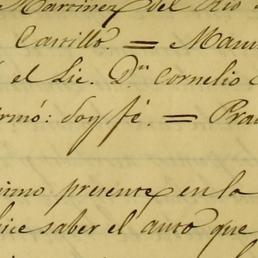 Martinez del Rio
Castillo. = Manu
el Lic. Dn. Cornelio
rmó: doy fé. = Pra
imo presente en la
ice saber el auto que